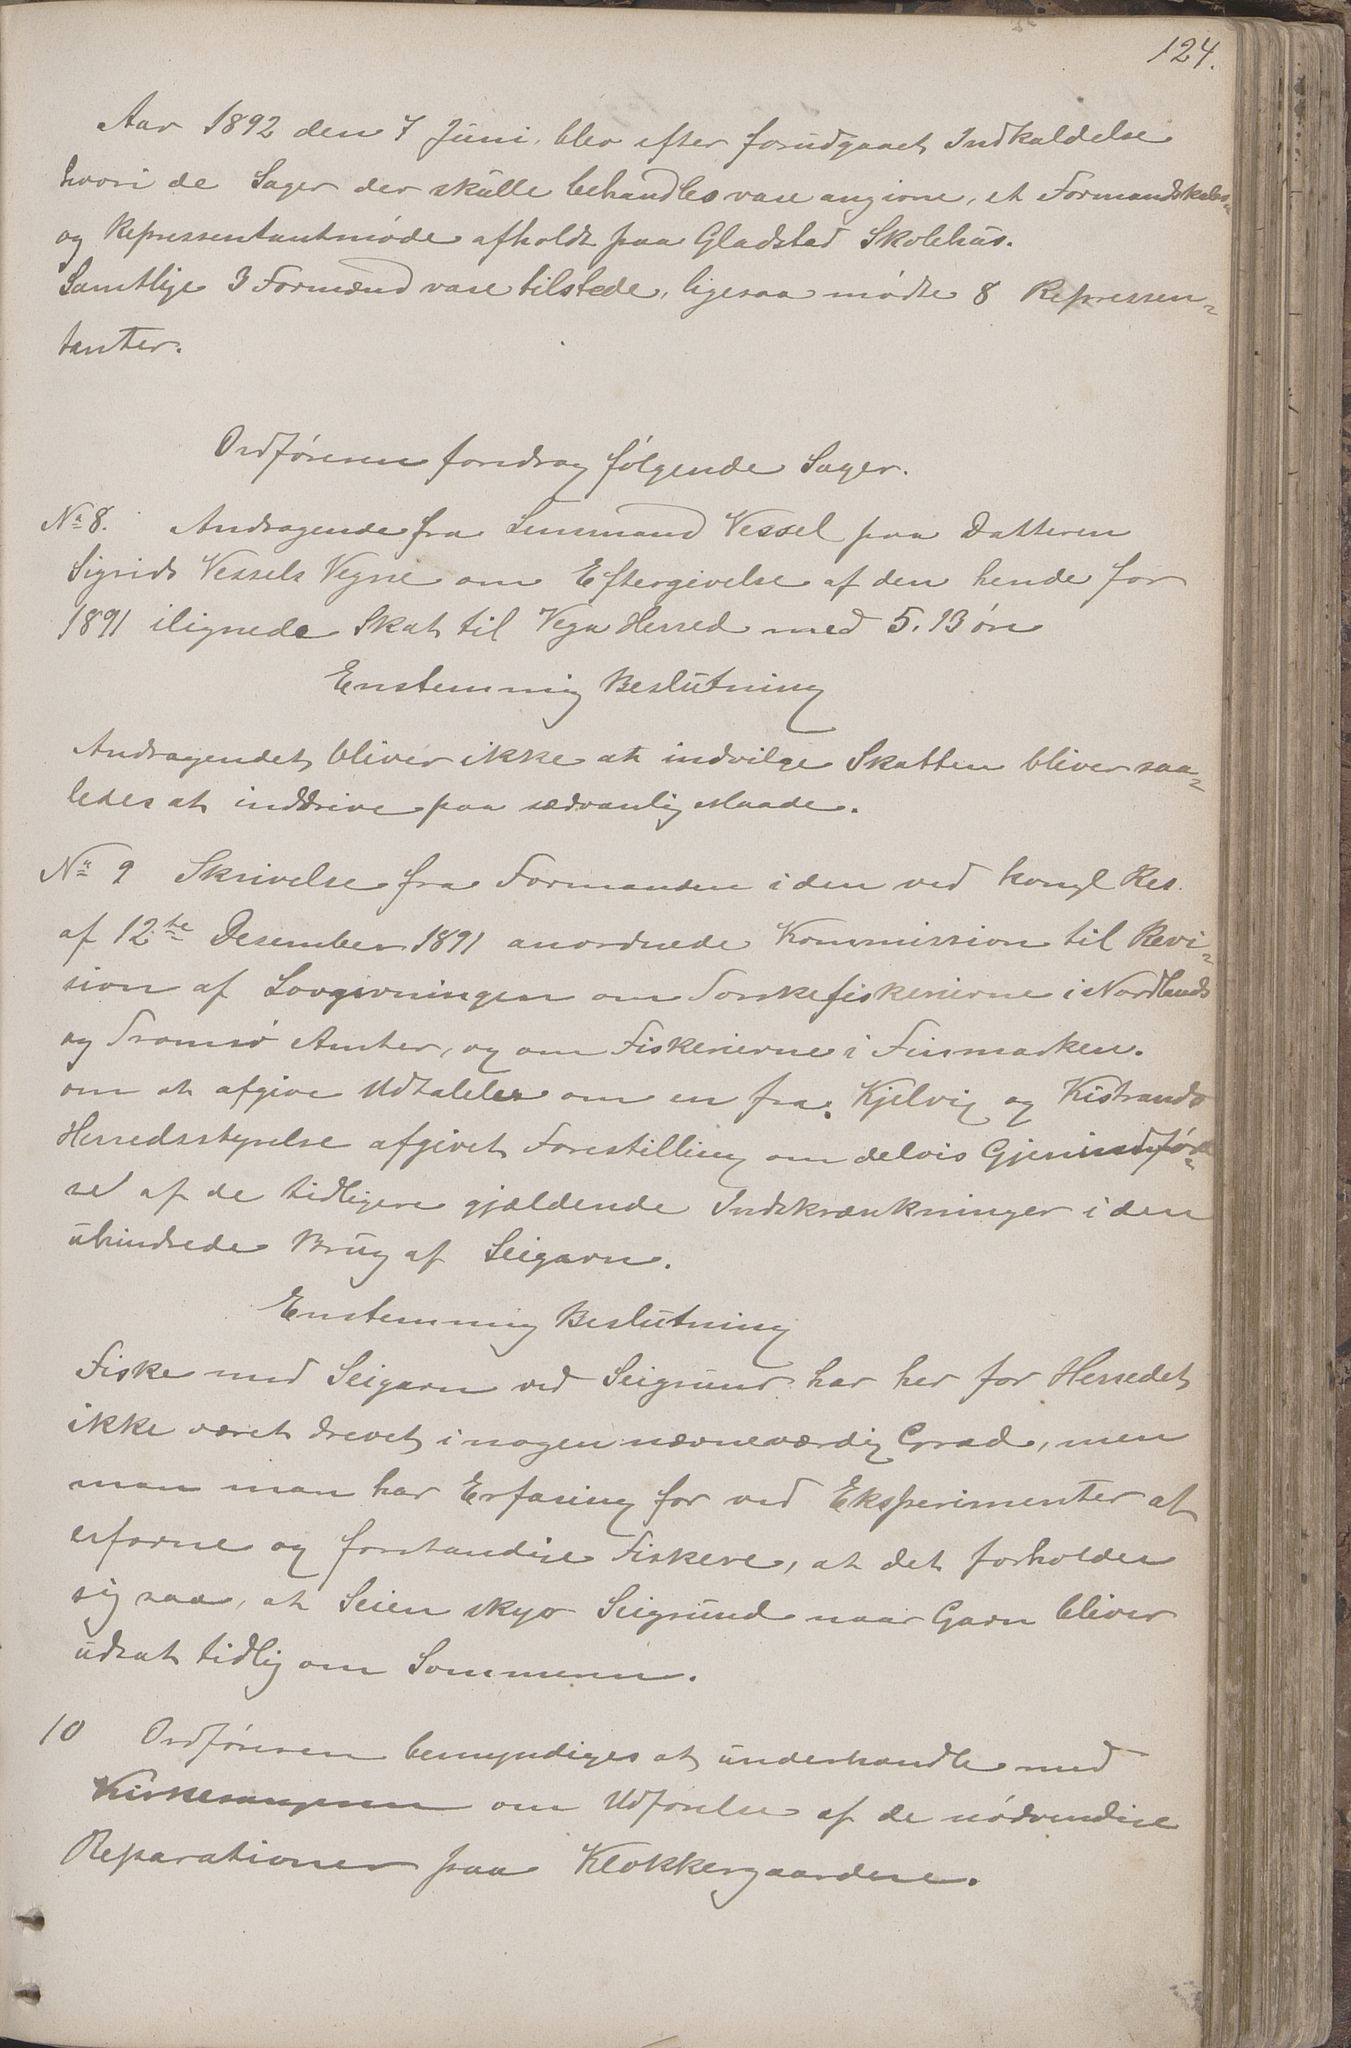 124.
Aar 1892 den 7 Juni, blev efter forudgaaet Indkaldelse
hvori de Sager der skulle behandles vare angivne, et Formandskabs-
og Repressentantmøde afholdt paa Gladstad Skolehus.
Samtlige 3 Formænd vare tilstede, ligesaa mødte 8 Repressen-
tanter.
Ordføreren foredrag følgende Sager.
No 8. Andragende fra Lensmand Vessel paa Datteren
Sigrids Vessels Vegne om Eftergivelse af den hende for
1891 ilignede Skat til Vega Herred med 5.13 øre
Enstemmig Beslutning
Andragendet bliver ikke at indvilge Skatten bliver saa-
ledes at inddrive paa sædvanlig Maade.
No 9 Skrivelse fra Formanden i den ved kongl Res.
af 12te Desember 1891 anordnede Kommission til Revi-
sion af Lovgivningen om Torskefiskerierne i Nordlands
og Tromsø Amter, og om Fiskerierne i Finmarken.
om at afgive Udtalelse om en fra Kjelvig og Kistrands
Herredsstyrelse afgivet Forestilling om delvis Gjenindførel-
se af de tidligere gjældende Indskrænkninger i den
uhindrede Brug af Seigarn.
Enstemmig Beslutning
Fiske med Seigarn ved Seigrund har her for Herredet
ikke været drevet i nogen nævneværdig Grad, men
man man har Erfaring for ved Eksperimenter af
erfarne og forstandige Fiskere, at det forholder
sig saa, at Seien skyr Seigrund naar Garn bliver
udsat tidlig om Sommeren.
10 Ordføreren bemyndiges at underhandle med
Kirkesangeren om Udførelse af de nødvendige
Reparationer paa Klokkergaardene.